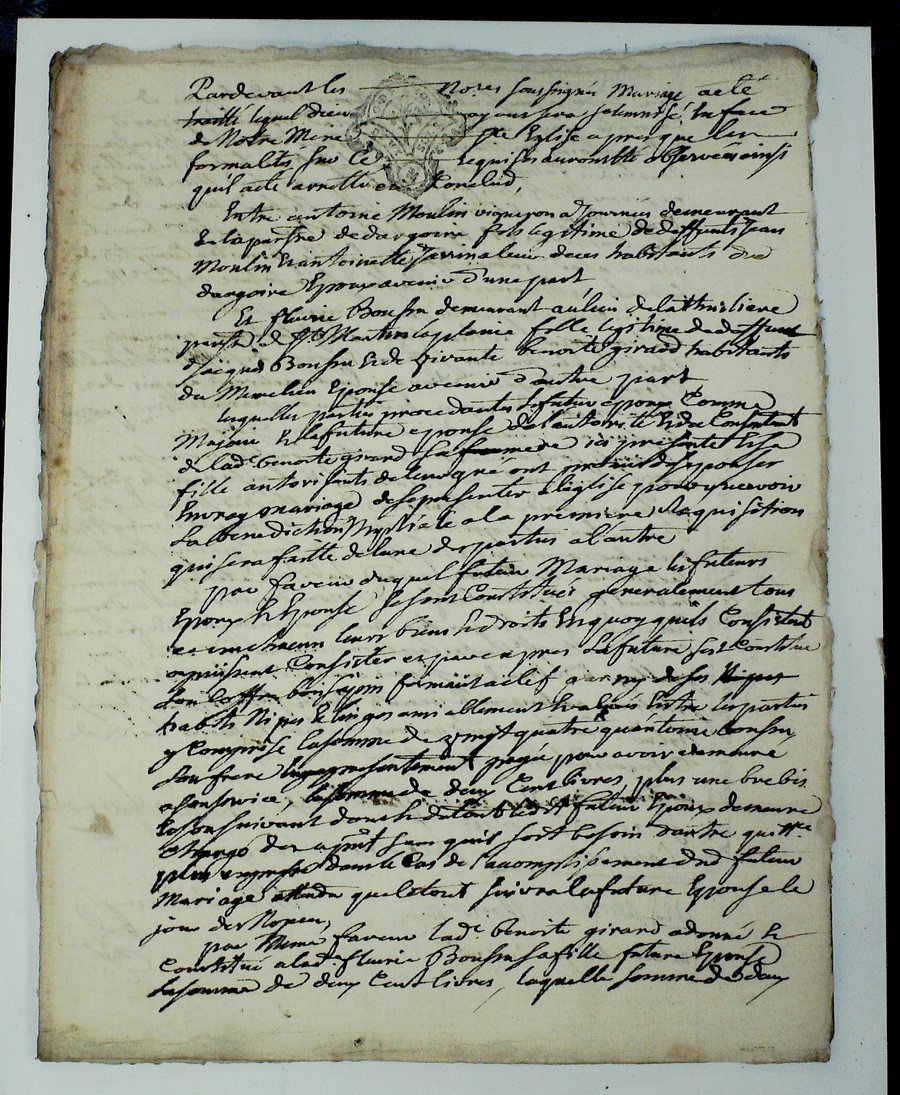 Pardevant les Nores soussignés Mariage a eté
traitté lequel dieu aydant sera solemnisé, En face
de Notre Mere Ste Eglise apres que les
formalités sur ce Requises auront eté observées ainsi
quil a ete arretté et Conclud,
Entre antoine Moulin vigneron a Journées demeurant
En la parsse de dargoire fils legitime de deffunts Jean
Moulin Et antoinette deces habitants dud
dargoire Epoux avenir d'une part
Et fleurie Bonsu demeurant au lieu de la thuiliere
parsse de St Martin la plaine fille legitime de deffunt
Jacques Bonsu Et de vivante benoite girard habitants
du Epouse avenir d'autre part
lesquelles parties procedantes le futur epoux Comme
Majeur Et la future epouse de l'autorité Et du Consentement
de lade benoite girard Sa mere ici presente Et sa
fille autorisant de leur gré ont promis de s'epouser
En vray mariage de se presenter a l'église pour y recevoir
La benediction Nuptiale a la premiere Requisition
qui sera faitte de l'une des parties a l'autre
par faveur duquel futur Mariage les futeurs
Epoux Et Epouse Se sont Constitués generalement tous
et un chacun leurs biens Et droits En quoy quils Consistent
ou puissent Consister et par expres La future s'est Constitué
Son Coffre bois sapin fermant a clef garny de ses Nipes
habits Nipes Et linges amiablement Evalués Entre les parties
y Comprise la somme de vingt quatre qu'antoine bonsu
Son frere presentement payée pour avoir demeuré
a son service, la somme de deux Cent livres, plus une brebis
Et son suivant dont Et du tout ledit futur Epoux demeure
Chargé des apnt sans quil soit besoin d'autre quittce
plus expresse dans le Cas de l'accomplissement dud futur
Mariage attendu que le tout suivra la future Epouse le
jour des Nopces,
par Meme faveur lade benoite girard a donné Et
Constitué a lade fleurie Bonsu sa fille future Epouse
La somme de deux Cent livres, laquelle somme de deux